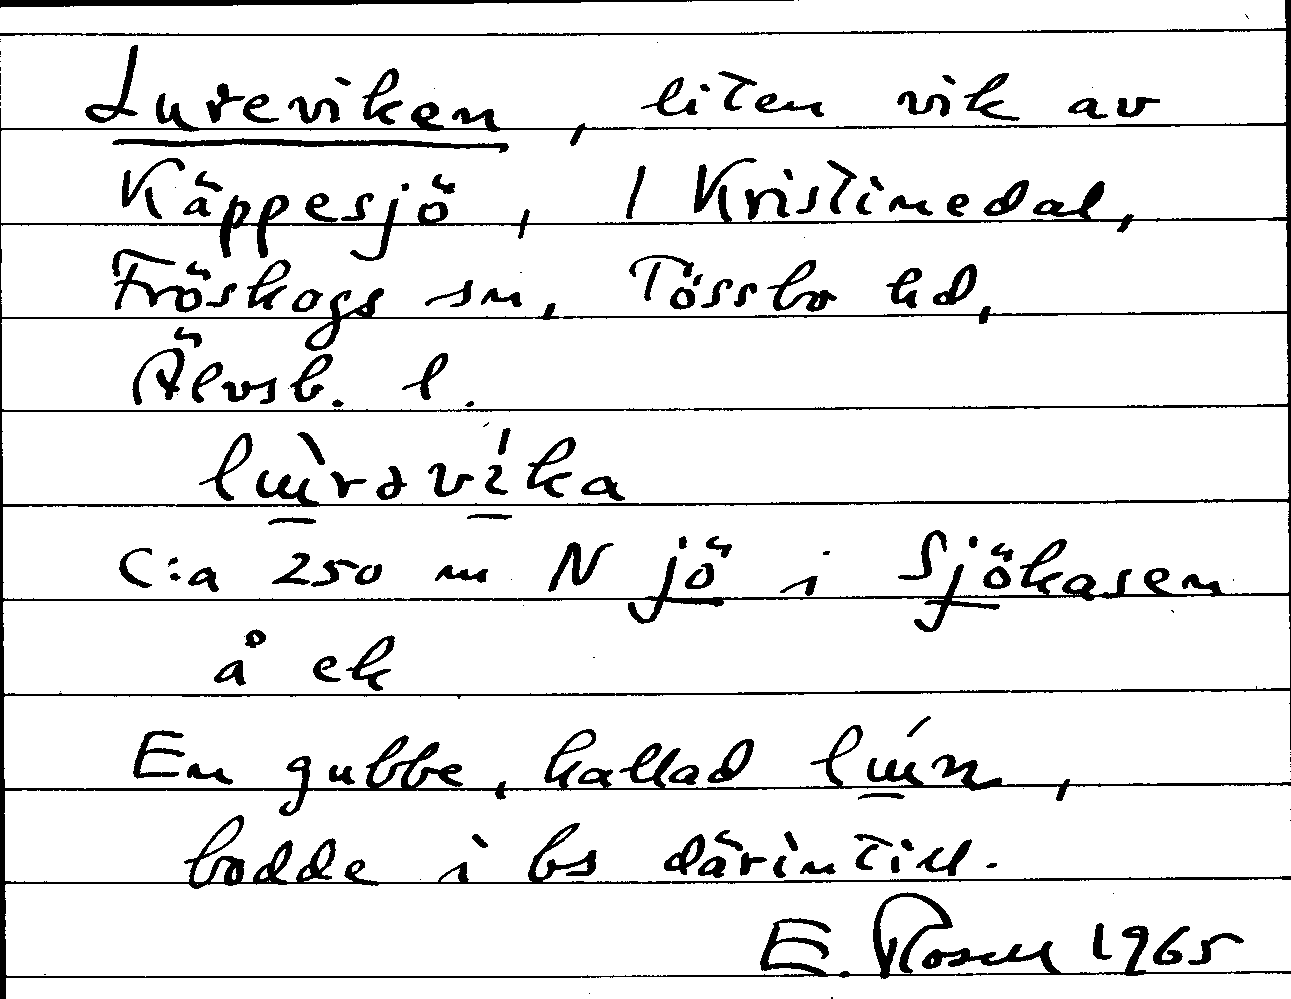 Lureviken, liten vik av
Käppesjö, 1 Kristinedal,
Fröskogs sn, Tössbo hd,
Älvsb. l.
lɯ̀rəvíka
C:a 250 m N jö i Sjökasen
å ek
En gubbe, kallad lɯ́n,
bodde i bs därintill.
E. Rosell 1965